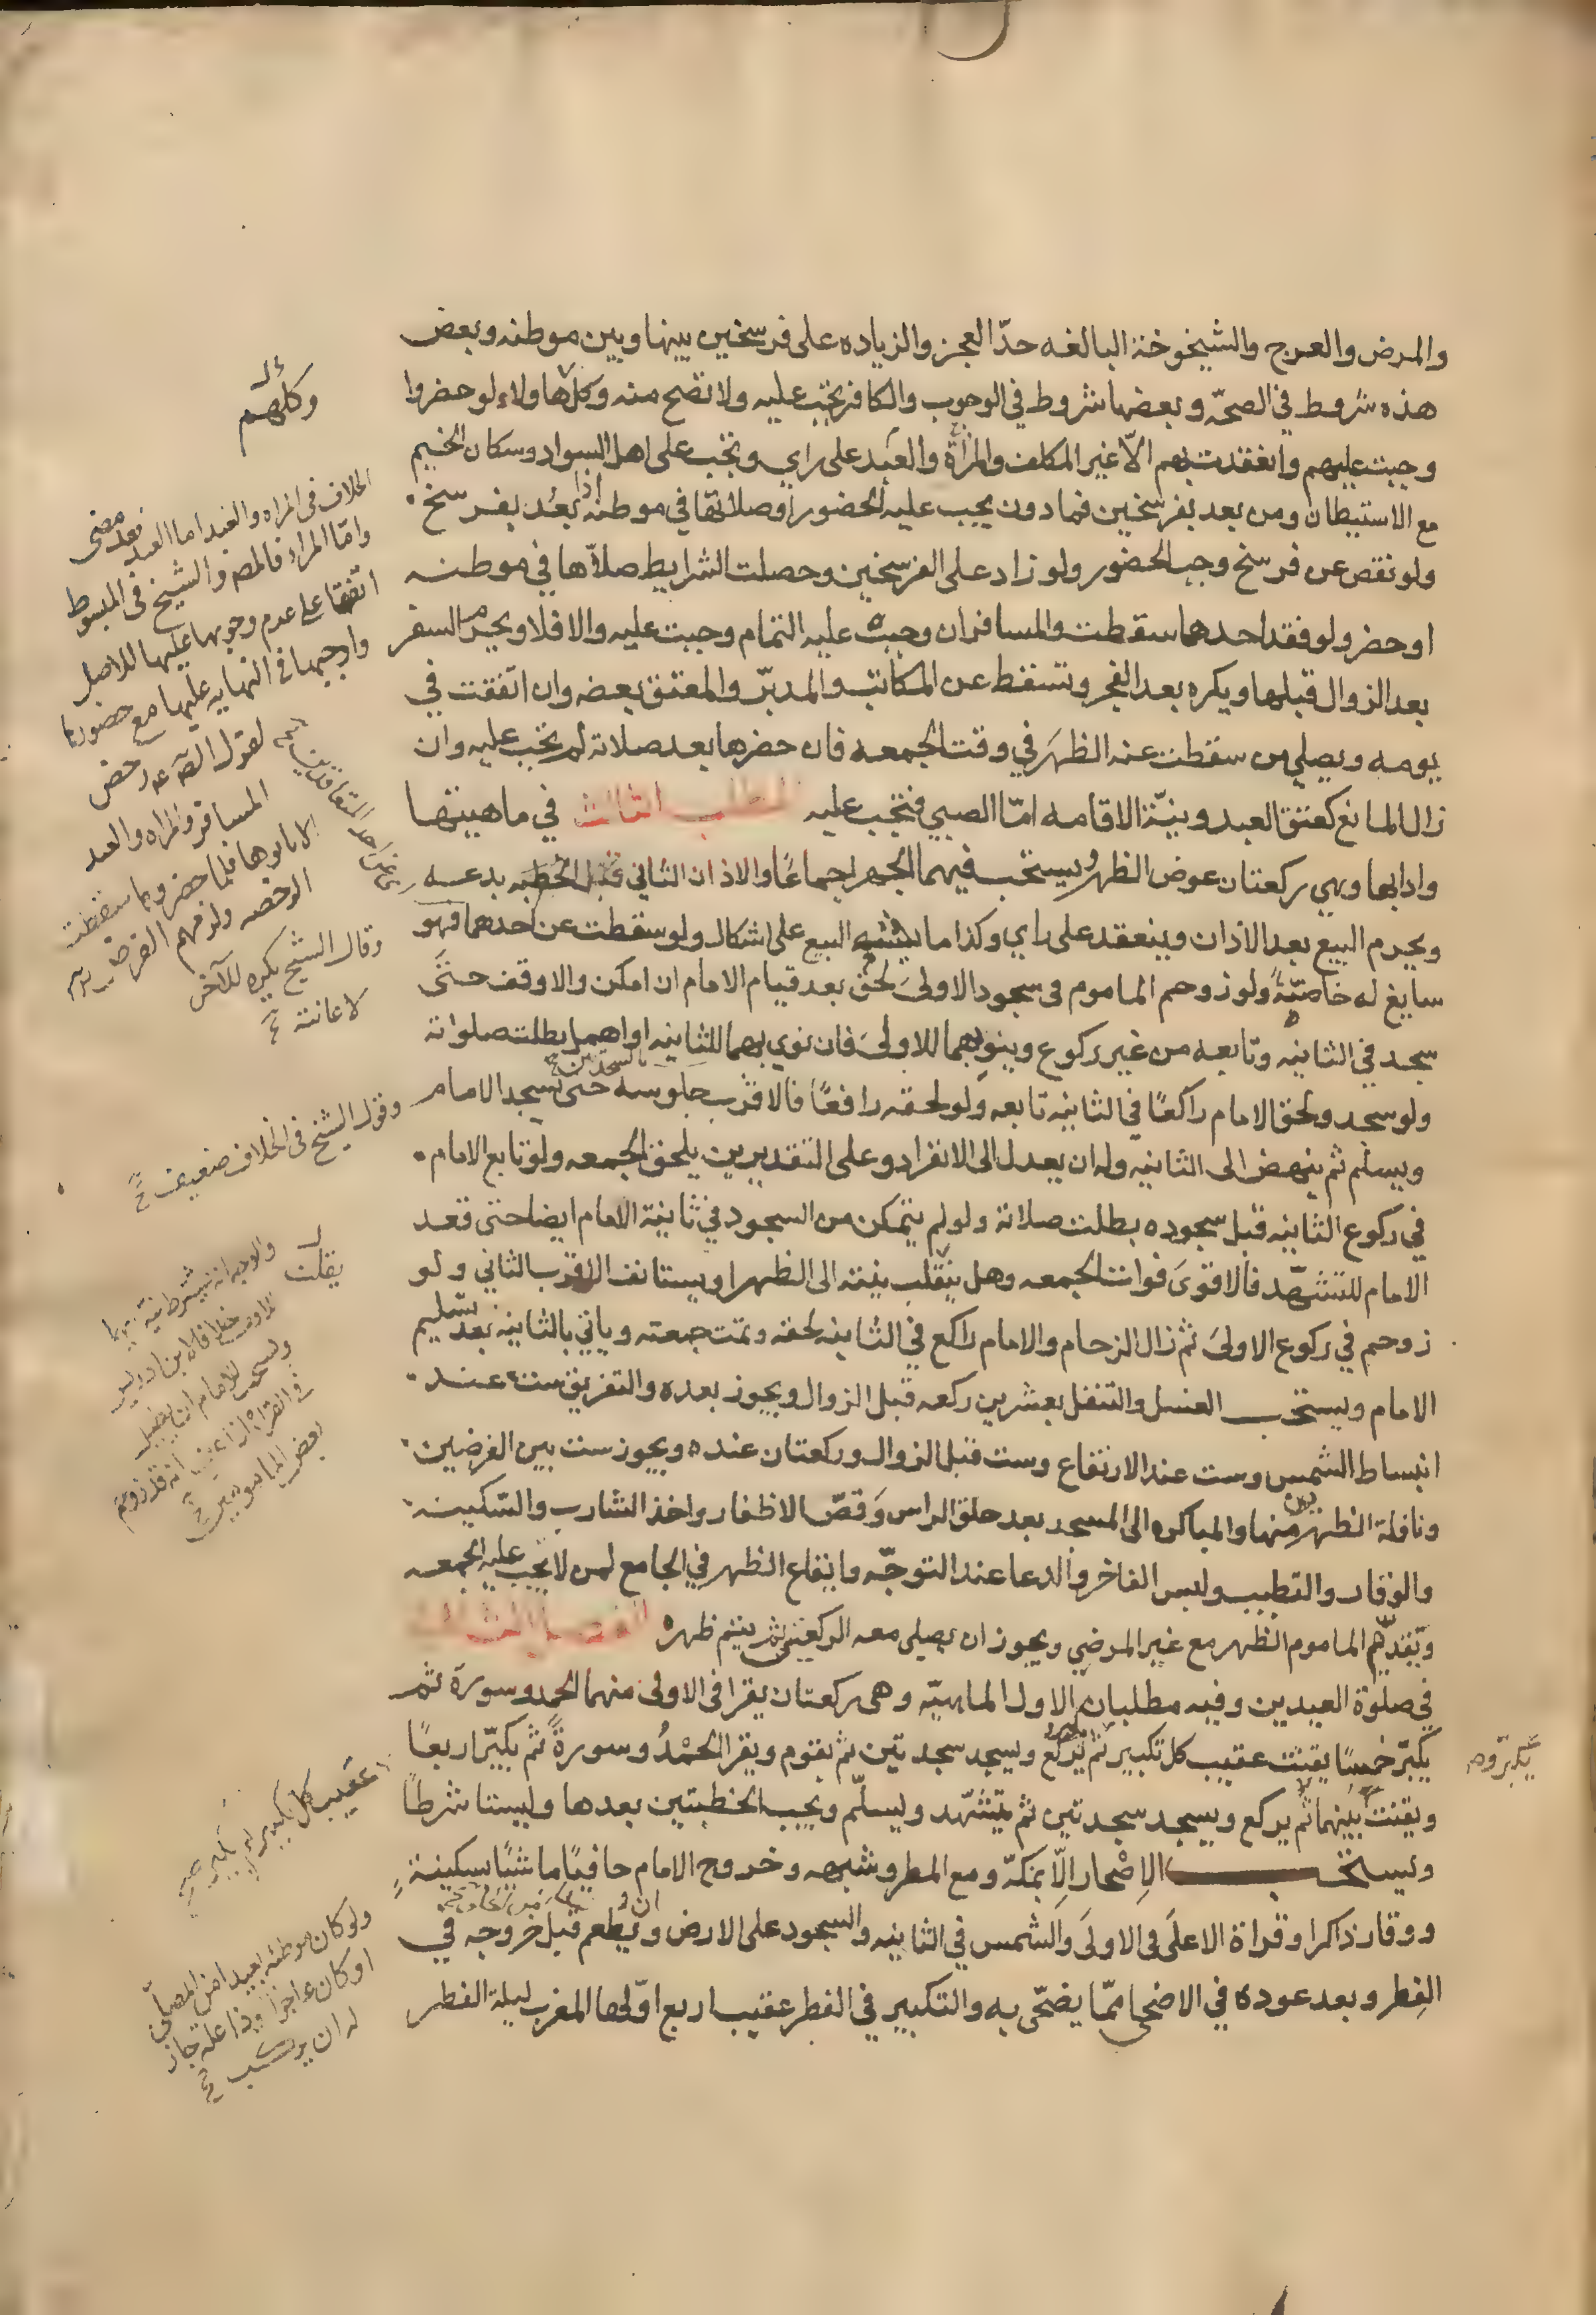 والمرض والعرج والشيخوخة البالغه حدّ العجز والزياده على فرسخين بينها وبين موطنه وبعض
هذه شروط في الصحّه وبعضها شروط في الوجوب والكافر تجب عليه ولا تصح منه وكلّها ولاء لو حضروا
وجبت عليهم وانعقدت بهم الاّ غير المكلف والمرأة والعبد على راي وتجب على اهل السواد وسكان الخيم
مع الاستيطان ومن بعد بفرسخين فما دون يجب عليه الحضور او صلاتها في موطنه اذا بَعُد بفرسخ
ولو نقص عن فرسخ وجب الحضور ولو زاد على الفرسخين وحصلت الشرايط صلاّها في موطنه
او حضر ولو فقد احدهما سقطت والمسافر ان وجب عليه التمام وجبت عليه والا فلا ويحرم السفر
بعد الزوال قبلها ويكره بعد الفجر وتسقط عن المكاتب والمدبّر والمعتق بعضه وان اتفقت في
يومه ويصلي من سقطت عنه الظهر في وقت الجمعه فان حضرها بعد صلاته لم تجب عليه وان
زال المانع كعتق العبد ونيّة الاقامه امّا الصبي فتجب عليه المطلب الثالث في ماهيتها
وادابها وهي ركعتان عوض الظهر ويستحب فيهما الجهر اجماعًا والاذان الثاني قبل الخطبه بدعه
ويحرم البيع بعد الاذان وينعقد على راي وكذا ما يشبه البيع على اشكال ولو سقطت عن احدهما فهو
سايغ له خاصّةً ولو زوحم الماموم في سجود الاولى لحق بعد قيام الامام ان امكن والا وقف حتى
سجد في الثانيه وتابعه من غير ركوع وينوبهما للاولى فان نوى بهما للثانيه او اهمل بطلت صلواته
ولو سجد ولحق الامام راكعًا في الثانيه تابعه ولو لحقه رافعًا فالاقرب جلوسه حتى يسجد الامام
ويسلم ثم ينهض الى الثانيه وله ان يعدل الى الانفراد وعلى التقديرين يلحق الجمعه ولو تابع الامام
في ركوع الثانيه قبل سجوده بطلت صلاته ولو لم يتمكن من السجود في ثانية الامام ايضا حتى قعد
الامام للتشهّد فالاقوى فوات الجمعه وهل يَنْقلب نيته الى الظهر او يستانف الاقرب الثاني ولو
زوحم في ركوع الاولى ثم زال الزحام والامام راكع في الثانيه لحقه وتمت جمعته وياتي بالثانيه بعد تسليم
الامام ويستحب الغسل والتنفل بعشرين ركعه قبل الزوال ويجوز بعده والتفريق ست عند
انبساط الشمس وست عند الارتفاع وست قبل الزوال وركعتان عنده ويجوز ست بين الفرضين
ونافلة الظهرين منها والمباكره الى المسجد بعد حلق الراس وقصّ الاظفار واخذ الشارب والسّكينة
والوقار والتطيب ولبس الفاخر والدعا عند التوجّه وايقاع الظهر في الجامع لمن لا تجب عليه الجمعه
وتقديم الماموم الظهر مع غير المرضي ويجوز ان يصلي معه الركعتين ثم يتم ظهره الفصل الثاني
في صلوة العيدين وفيه مطلبان الاول الماهيّه وهي ركعتان يقرا في الاولى منهما الحمد وسورة ثم
يكبّر خمسًا يقنت عقيب كل تكبير ثم يركع ويسجد سجدتين ثم يقوم ويقرا الحمْدُ وسورةً ثم يكبّر اربعًا
ويقنت بينهما ثم يركع ويسجد سجدتين ثم يتشهّد ويسلّم ويجب الخطبتين بعدها وليستا شرطًا
ويستحب الاِصْحار الاّ بمَكّه ومع المطر وشبهه وخروج الامام حافيًا ماشيًا بسكينة
ووقار ذاكرا وقراة الاعلى في الاولى والشمس في الثانيه والسجود على الارض وان يطعم قبل خروجه في
الفِطر وبعد عوده في الاضحى ممّا يضحّى به والتكبير في الفطر عقيب اربع اوّلها المغرب ليلة الفطر
وكلهم
الخلاف في المراه والعبد اما العبد فقد مضى
وامّا المراه فالمص والشيخ في المبسوط
اتفقا على عدم وجوبها عليها للاصل
واوجبها في النهايه عليها مع حضورها
المسافر والمراه والعبد
الرخصه ولزمهم الفرض
وقال الشيخ يكره للآخر
لاعانته
وقول الشيخ في الخلاف ضعيف
يقلب
ولسحب للامام ان يطيل
بعض المامومين
يكبّر
عقيب كل تكبير
ولو كان موطنه بعيدا من المصلّى
او كان عاجزا وذا علة جاز
له ان يركب